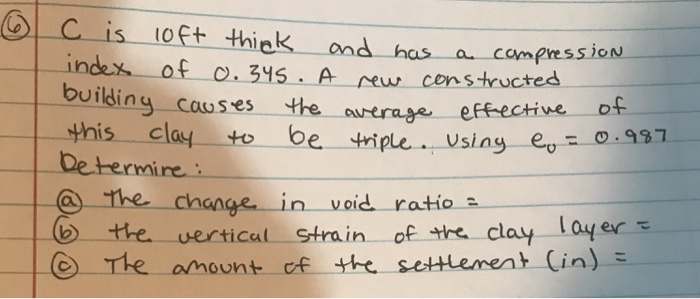 ⑥ C is 10ft thick and has a compression
index of 0.345. A new constructed
building causes the average effective of
this clay to be triple. Using e₀ = 0.987
Determine:
ⓐ the change in void ratio =
ⓑ the vertical strain of the clay layer =
ⓒ The amount of the settlement (in) =